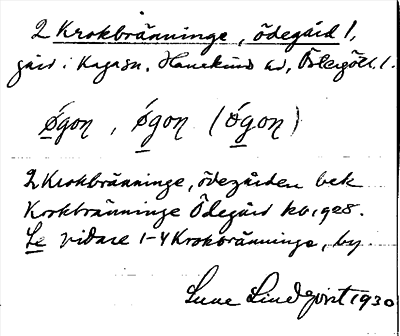 2 Krokbränninge, ödegård 1,
gård i Kaga sn. Hanekinds hd, Östergötl. l.
ǿgon, ǿgon (ǿgon)
2 Krokbränninge, ödegården bek
Krokbränninge Ödegård kb. 1928.
Se vidare 1-4 Krokbränninge, by.
Sune Lindqvist 1930